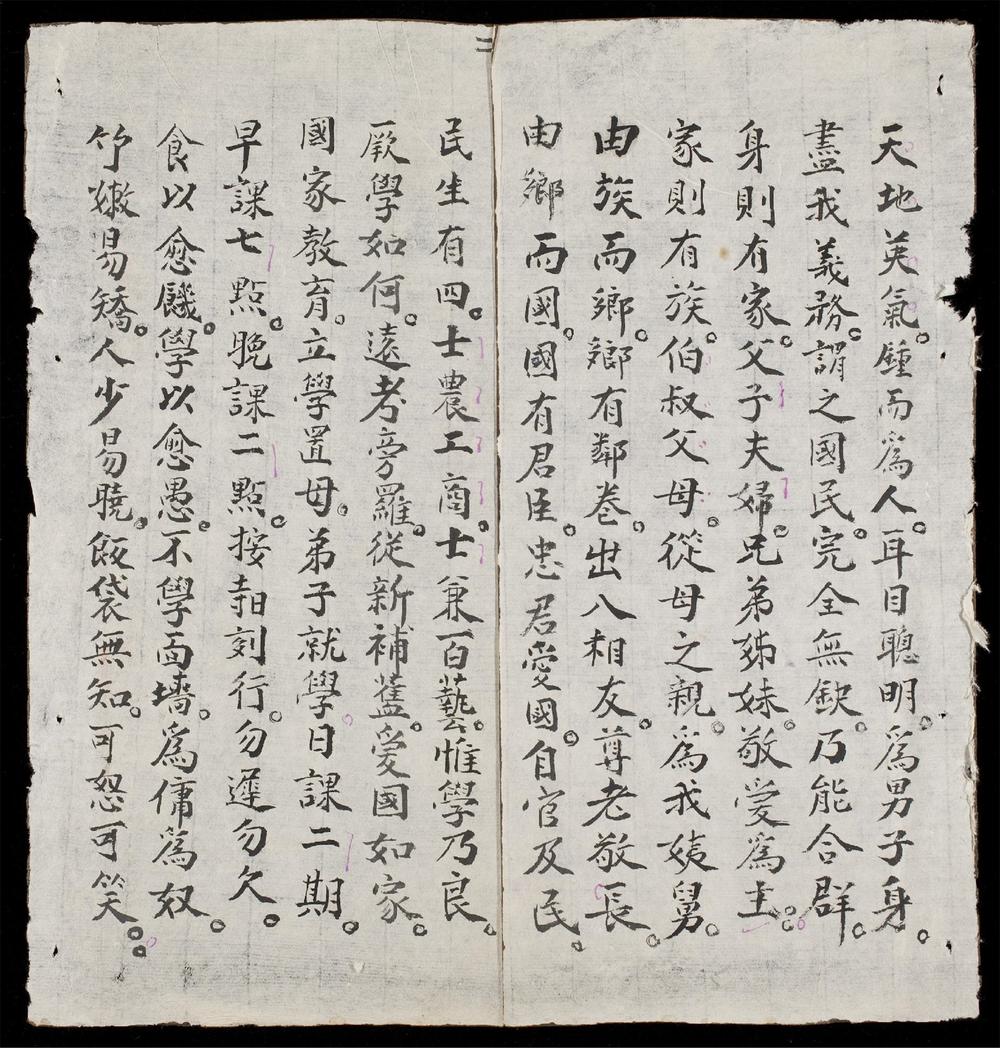 二
天地英氣。鍾而爲人。耳目聰明。爲男子身。
盡我義務。謂之國民。完全無缺。乃能合群。
身則有家。父子夫婦。兄弟姊妹。敬愛爲主。
家則有族。伯叔父母。從母之親。爲我姨舅。
由族而鄉。鄉有鄰巷。出入相友。尊老敬長。
由鄉而國。國有君臣。忠君愛國。自官及民。
民生有四。士農工商。士兼百藝。惟學乃良。
厥學如何。遠考旁羅。從新補舊。愛國如家。
國家教育。立學置母。弟子就學。日課二期。
早課七點。晚課二點。按時刻行。勿遲勿欠。
食以愈饑。學以愈愚。不學面墻。爲傭爲奴。
竹嫩易矯。人少易曉。飯袋無知。可恕可笑。